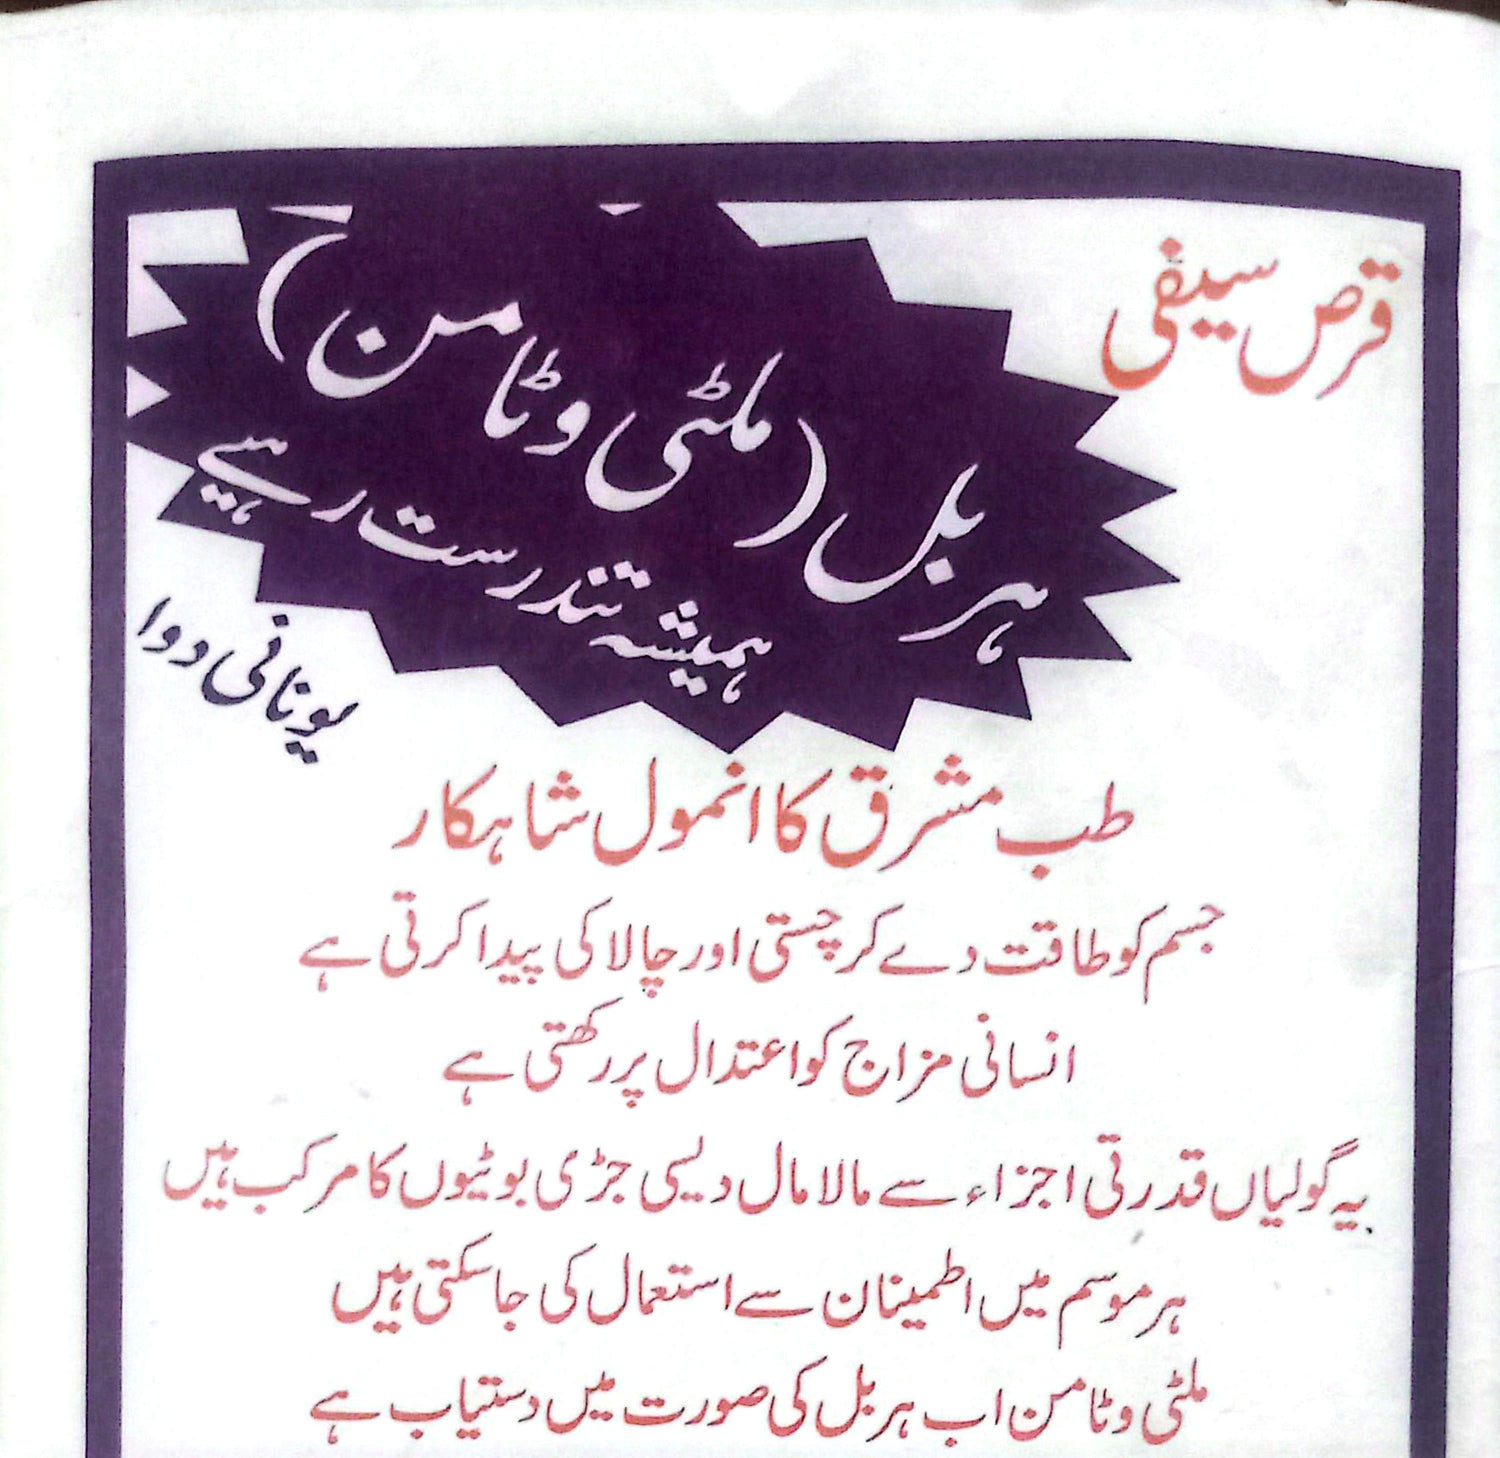 قرص سیفی
ہربل (ملٹی وٹامن)
ہمیشہ تندرست رہیے
یونانی دوا
طب مشرق کا انمول شاہکار
جسم کو طاقت دے کر چستی اور چالاکی پیدا کرتی ہے
انسانی مزاج کو اعتدال پر رکھتی ہے
یہ گولیاں قدرتی اجزاء سے مالا مال دیسی جڑی بوٹیوں کا مرکب ہیں
ہر موسم میں اطمینان سے استعمال کی جاسکتی ہیں
ملٹی وٹامن اب ہربل کی صورت میں دستیاب ہے